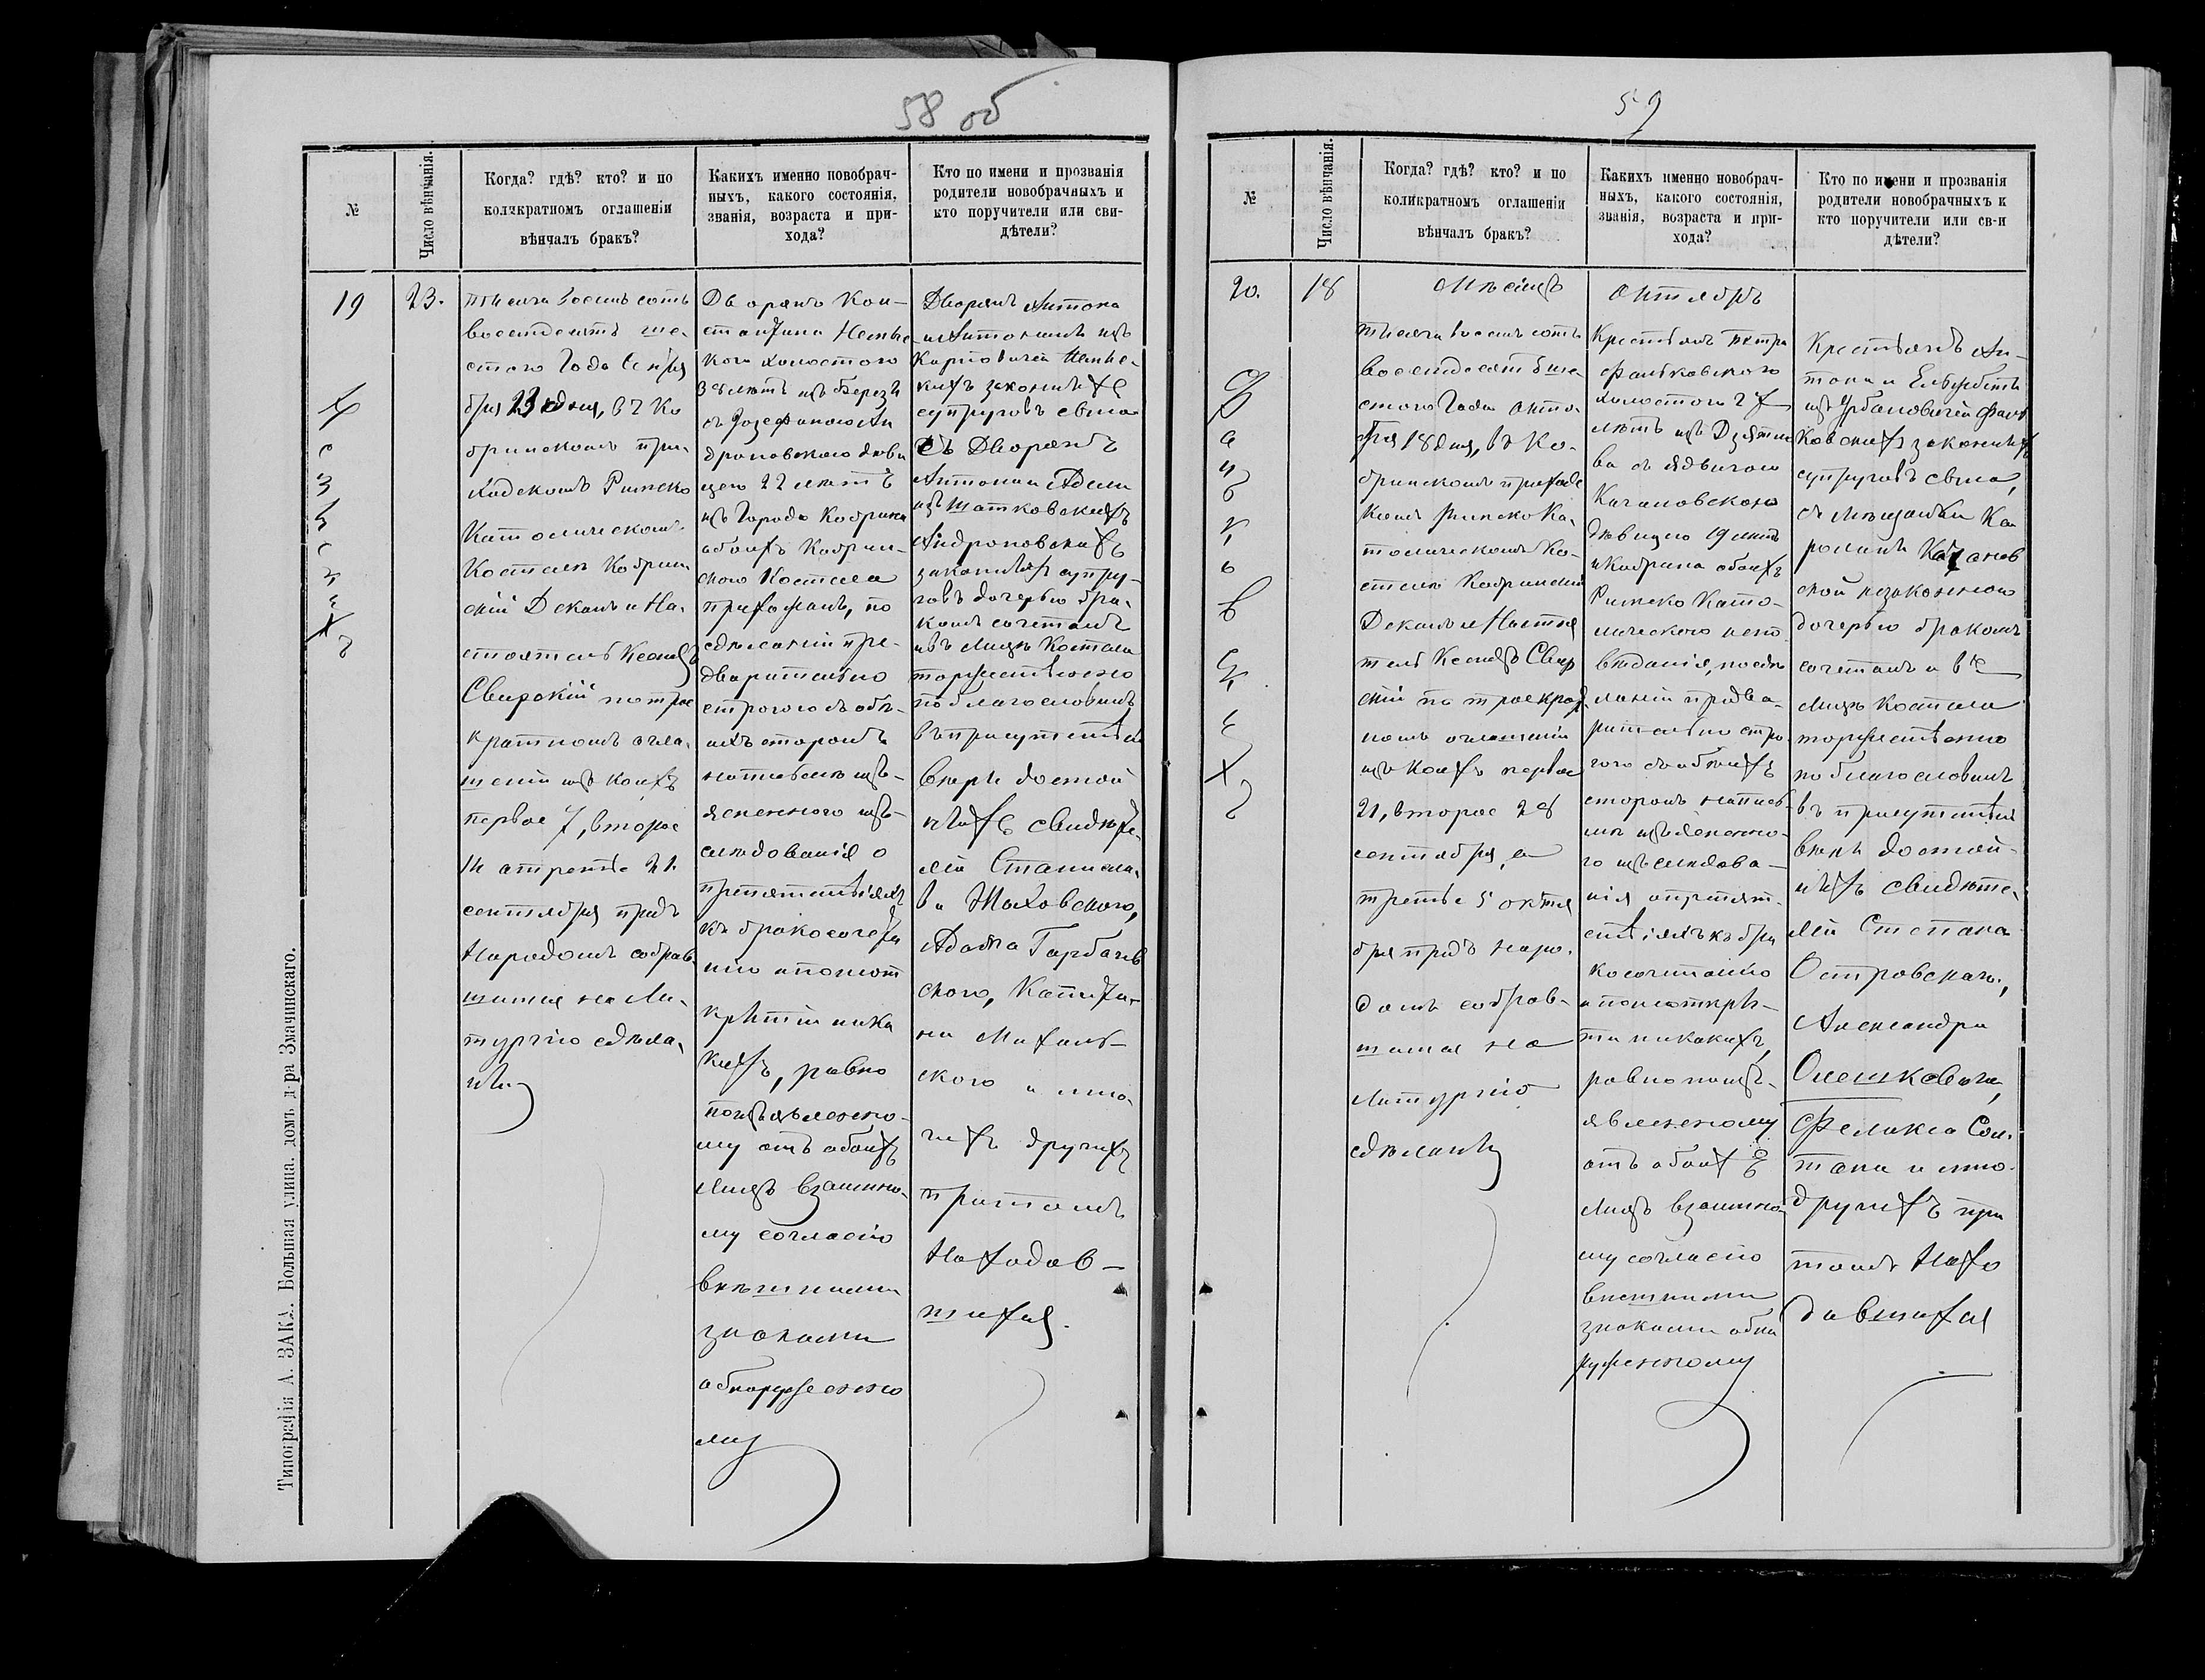 58 об
№
Число вѣнчанія.
Когда? гдѣ? кто? и по
коликратномъ оглашеніи
вѣнчалъ бракъ?
Какихъ именно новобрач-
ныхъ, какого состоянія,
званія, возраста и при-
хода?
Кто по имени и прозванія
родители новобрачныхъ и
кто поручители или сви-
дѣтели?
19
23.
тысяча восемь сотъ
восемдесятъ ше-
стого года Сентя
бря 23 дня, въ Ко
бринскомъ при-
ходскомъ Римско
Католическомъ
Костелѣ Кобрин
скій Деканъ и На-
стоятель Ксендзъ
Свирскій по трое
кратномъ огла-
шеніи изъ коихъ
первое 7, второе
14 а третье 21
сентября предъ
народомъ собрав
шимся на Ли-
тургію сдѣла-
ны
Дворянъ Кон-
стантина
кого холостого
лѣтъ изъ Березы
съ Іозефиною Ан
дроповскою дѣви
цею 22 лѣтъ
изъ города Кобрина
обоихъ Кобрин-
ского Костела
прихожанъ, по
сдѣланіи пре-
дварительно
строгого съ обѣ-
ихъ сторонъ
на письмѣ изъ-
ясненного изъ-
слѣдованія о
препятствіяхъ
къ бракосочета
нію а по неот
крытіи ника
кихъ, равно
по изъявленно-
му отъ обоихъ
лицъ взаимно-
му согласію
внѣшними
знаками
обнаруженно
му
Дворянъ Антона
и Антонины изъ
Карповичей
кихъ законныхъ
супруговъ сына
съ Дворянъ
Антона и Адели
изъ Шатковскихъ
Андроповскихъ
законныхъ супру-
говъ дочерью бра-
комъ сочеталъ
и въ лицѣ Костела
торжественно
поблагословилъ
въ присутствіи
вѣры достой
ныхъ свидѣте-
лей Станисла-
ва Жоховского,
Адама Горбачев
ского,
на
ского и мно-
гихъ другихъ
при томъ
находив-
шихся.
Типографія А. ЗАКА. Большая улица. домъ д-ра Змачинскаго.
59
№
Число вѣнчанія.
Когда? гдѣ? кто? и по
коликратномъ оглашеніи
вѣнчалъ бракъ?
Какихъ именно новобрач-
ныхъ, какого состоянія,
званія, возраста и при-
хода?
Кто по имени и прозванія
родители новобрачныхъ к
кто поручители или св-и
дѣтели?
20.
18
Фалько
вских
мѣсяцъ
тысяча восемь сотъ
восемдесятъ ше
стого года Октя-
бря 18 дня, въ Ко-
бринскомъ приход
комъ Римско Ка-
толическомъ Ко-
стелѣ Кобринскій
Деканъ и Настоя
тель Ксендзъ Свир
скій по троекрат
номъ оглашеніи
изъ коихъ первое
21, второе 28
сентября, а
третье 5 октя
бря предъ наро-
домъ собрав-
шимся на
Литургію
сдѣланы
Октябрь
Крестьянъ Петра
Фальковского
холостого 27
лѣтъ изъ Дзятко
ва съ Ядвигою
Качановскою
дѣвицею 19 лѣтъ
изъ Кобрина обоихъ
Римско Като-
лическаго испо
вѣданія, по сдѣ
ланіи предва-
рительно стро
гого съ обоихъ
сторонъ на пись-
мѣ изъясненно-
го изъслѣдова-
нія о препят-
ствіяхъ къ бра
косочетанію
а по неоткры-
тіи никакихъ,
равно по изъ-
явленному
отъ обоихъ
лицъ взаимно-
му согласію
внѣшними
знаками обна
руженному
Крестьянъ Ан-
тона и Елисабеты
изъ Урбановичей Фаль
ковскихъ законныхъ
супруговъ сына,
съ мѣщанки Ка
ролины Качанов
ской незаконною
дочерью бракомъ
сочеталъ и въ
лицѣ Костела
торжественно
поблагословилъ
въ присутствіи
вѣры достой-
ныхъ свидѣте-
лей Степана
Островскаго,
Александра
Олешкевича,
Феликса Сол-
тана и мно.
другихъ при
томъ нахо
дившихся